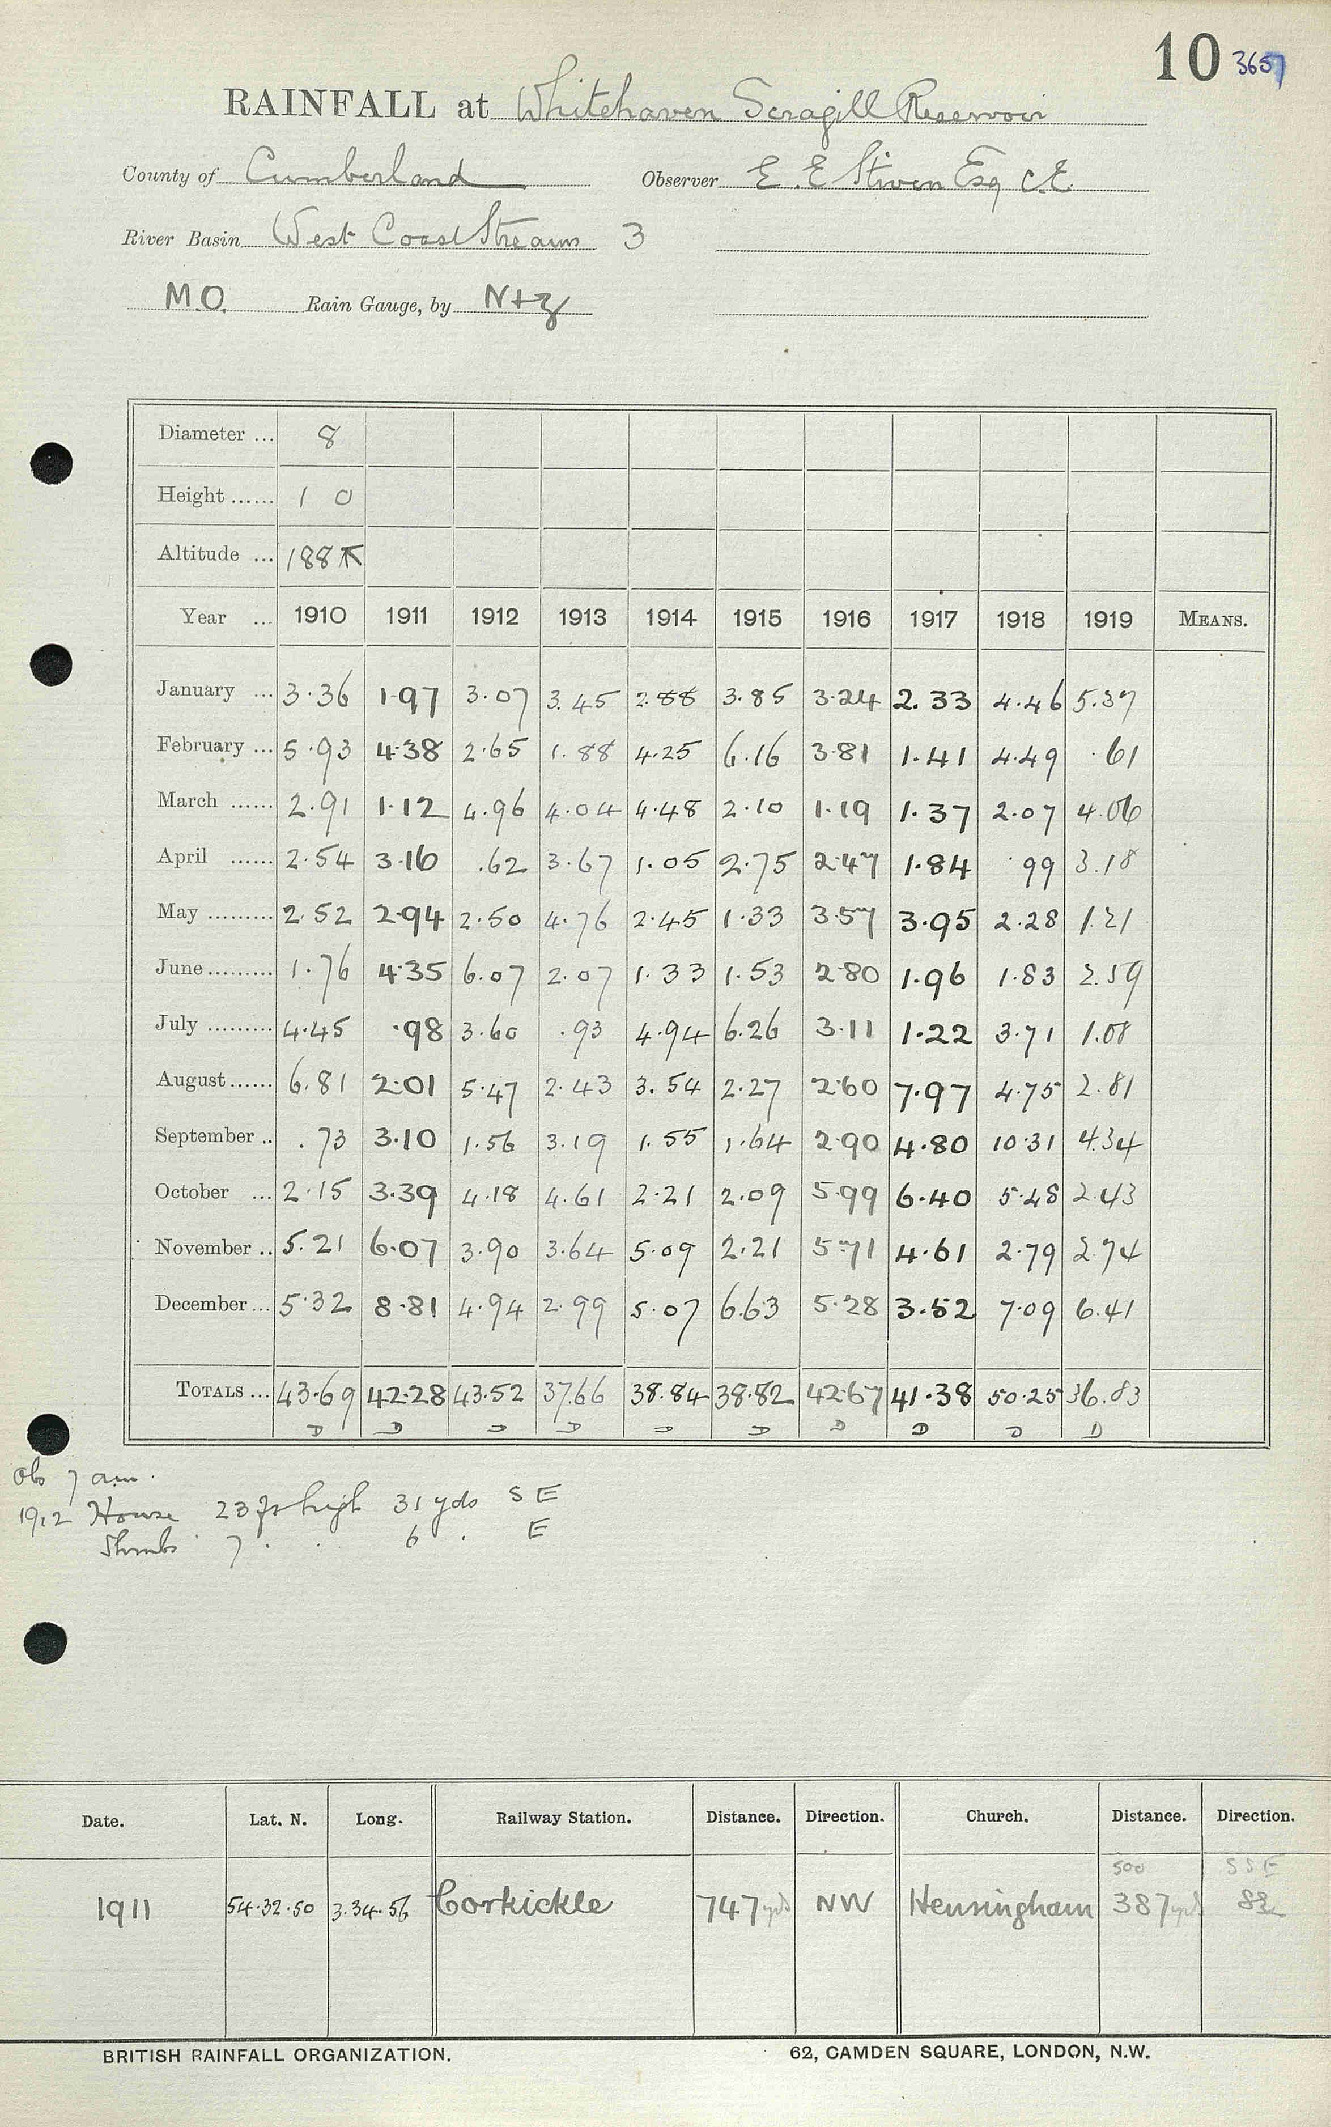 10 3657
RAINFALL at Whitehaven Scragill Reservoir
County of Cumberland Observer E. E Stiven Esq C.E.
River Basin West Coast Streams 3
M.O. Rain Gauge, by N+Z
Diameter ... 8
Height ...... 1 0
Altitude ... 188
Year ... 1910 1911 1912 1913 1914 1915 1916 1917 1918 1919 MEANS.
January ... 3.36 1.97 3.07 3.45 2.88 3.85 3.24 2.33 4.46 5.37
February ... 5.93 4.38 2.65 1.88 4.25 6.16 3.81 1.41 4.49 .61
March ...... 2.91 1.12 4.96 4.04 4.48 2.10 1.19 1.37 2.07 4.06
April ...... 2.54 3.16 .62 3.67 1.05 2.75 2.47 1.84 .99 3.18
May ......... 2.52 2.94 2.50 4.76 2.45 1.33 3.57 3.95 2.28 1.21
June ......... 1.76 4.35 6.07 2.07 1.33 1.53 2.80 1.96 1.83 2.59
July ......... 4.45 .98 3.60 .93 4.94 6.26 3.11 1.22 3.71 1.08
August ...... 6.81 2.01 5.47 2.43 3.54 2.27 2.60 7.97 4.75 2.81
September .. .73 3.10 1.56 3.19 1.55 1.64 2.90 4.80 10.31 4.34
October ... 2.15 3.39 4.18 4.61 2.21 2.09 5.99 6.40 5.48 2.43
November .. 5.21 6.07 3.90 3.64 5.09 2.21 5.71 4.61 2.79 2.74
December ... 5.32 8.81 4.94 2.99 5.07 6.63 5.28 3.52 7.09 6.41
TOTALS ... 43.69 42.28 43.52 37.66 38.84 38.82 42.67 41.38 50.25 36.83
D D D D D D D D D D
Ob 7 am.
1912 House 23 ft high 31 yds SE
Shrubs 7 . . 6 . E
Date. Lat. N. Long. Railway Station. Distance. Direction. Church. Distance. Direction.
500 SSE
1911 54.32.50 3.34.56 Corkickle 747 yds NW Hensingham 387 yds
BRITISH RAINFALL ORGANIZATION. 62, CAMDEN SQUARE, LONDON, N.W.